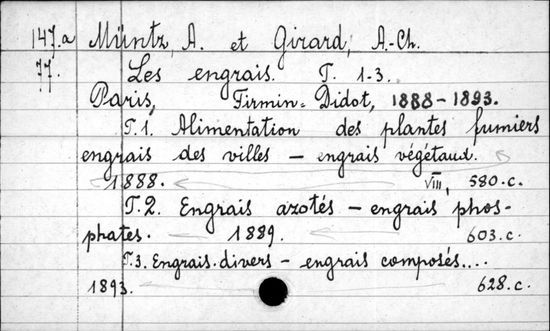 147.a Müntz, A. et Girard, A.-Ch.
77. Les engrais. T. 1-3.
Paris, Firmin-Didot, 1888-1893.
T.1. Alimentation des plantes fumiers
engrais des villes – engrais végétaux.
1888. VIII, 580.c.
T.2. Engrais azotés – engrais phos-
phates. 1889. 603.c.
T.3. Engrais divers – engrais composés....
1893. 628.c.